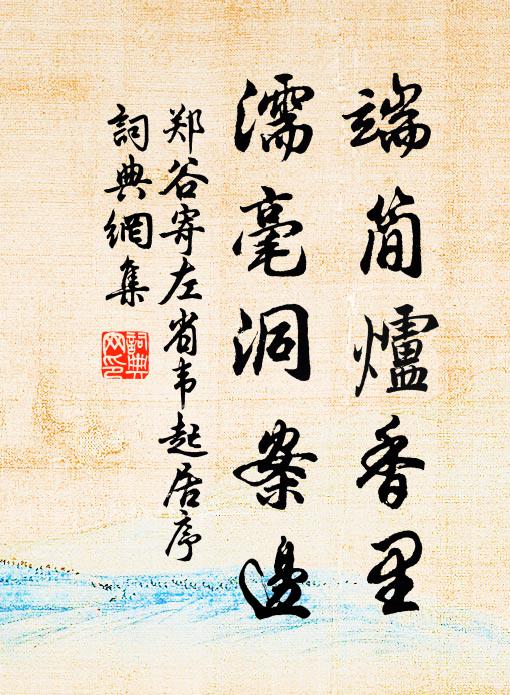 端简爐香里
濡毫洞案邊
郑谷寄左省韦起居序
詞典網集
詞典網印